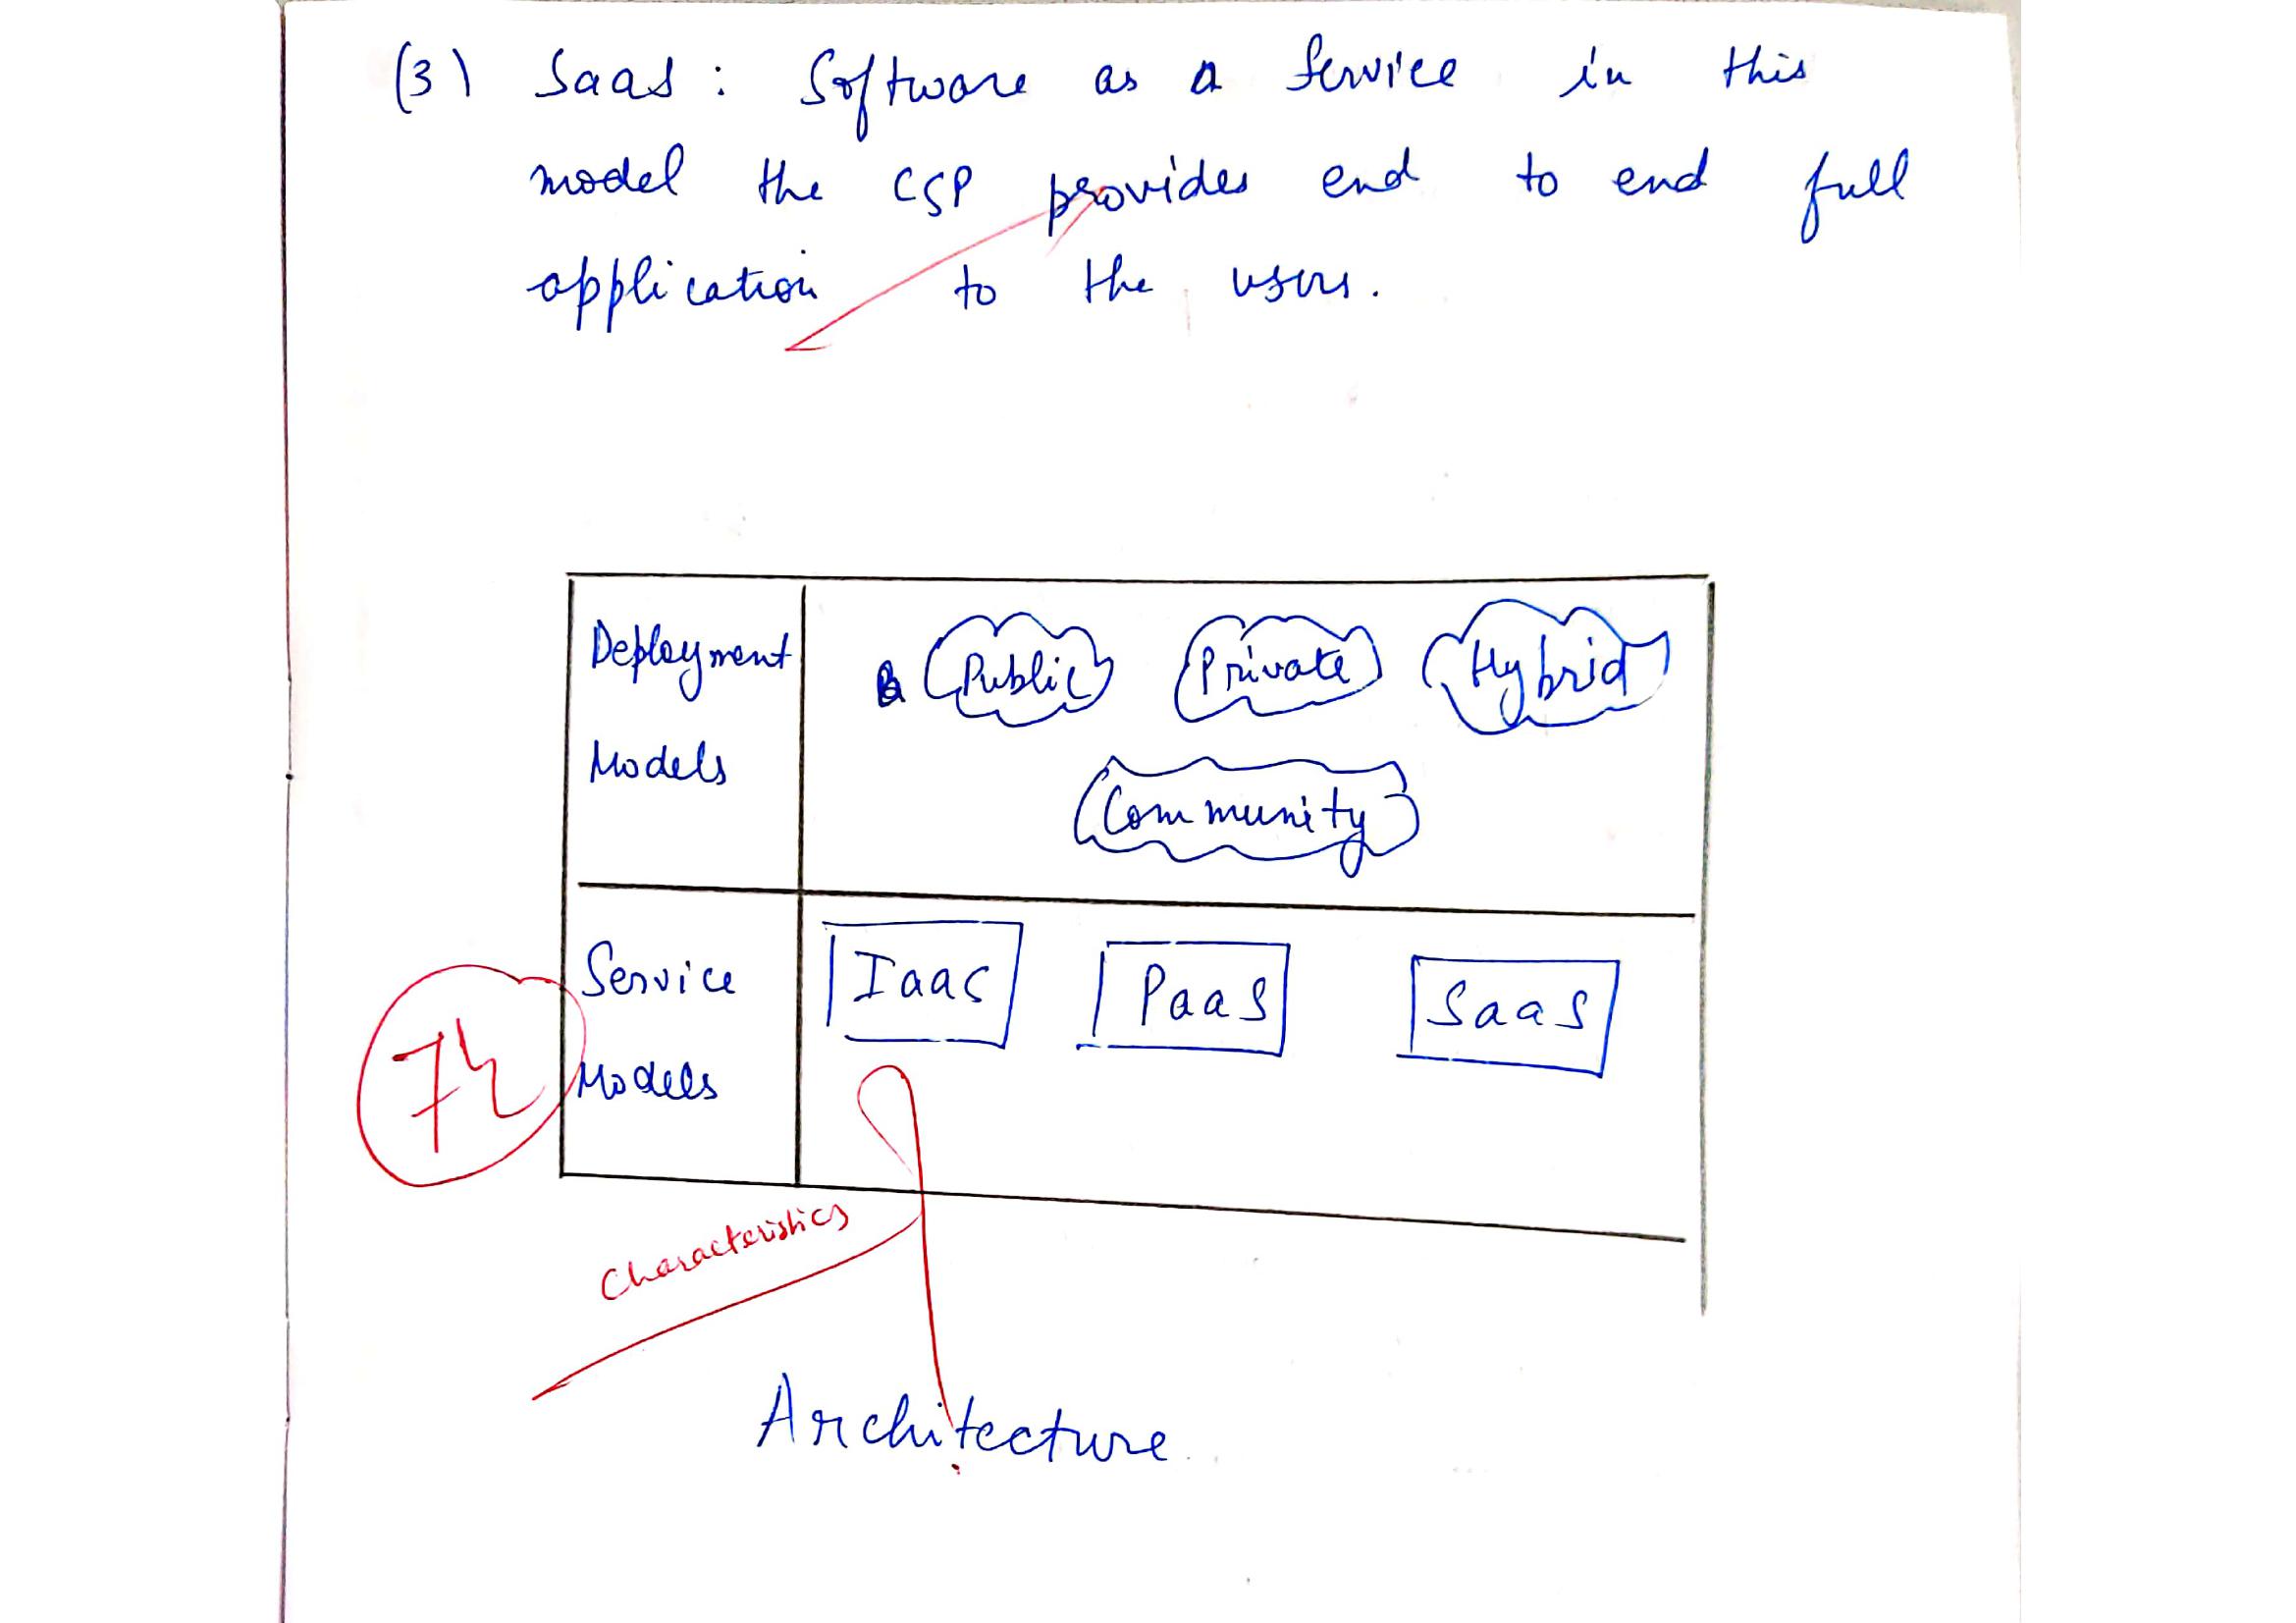 (3) Saas : Software as a Service in this
model the CSP provides end to end full
application to the users.
Deployment
Models
Public Private Hybrid
Community
Service
Models
Iaas Paas Saas
Characteristics
Architecture